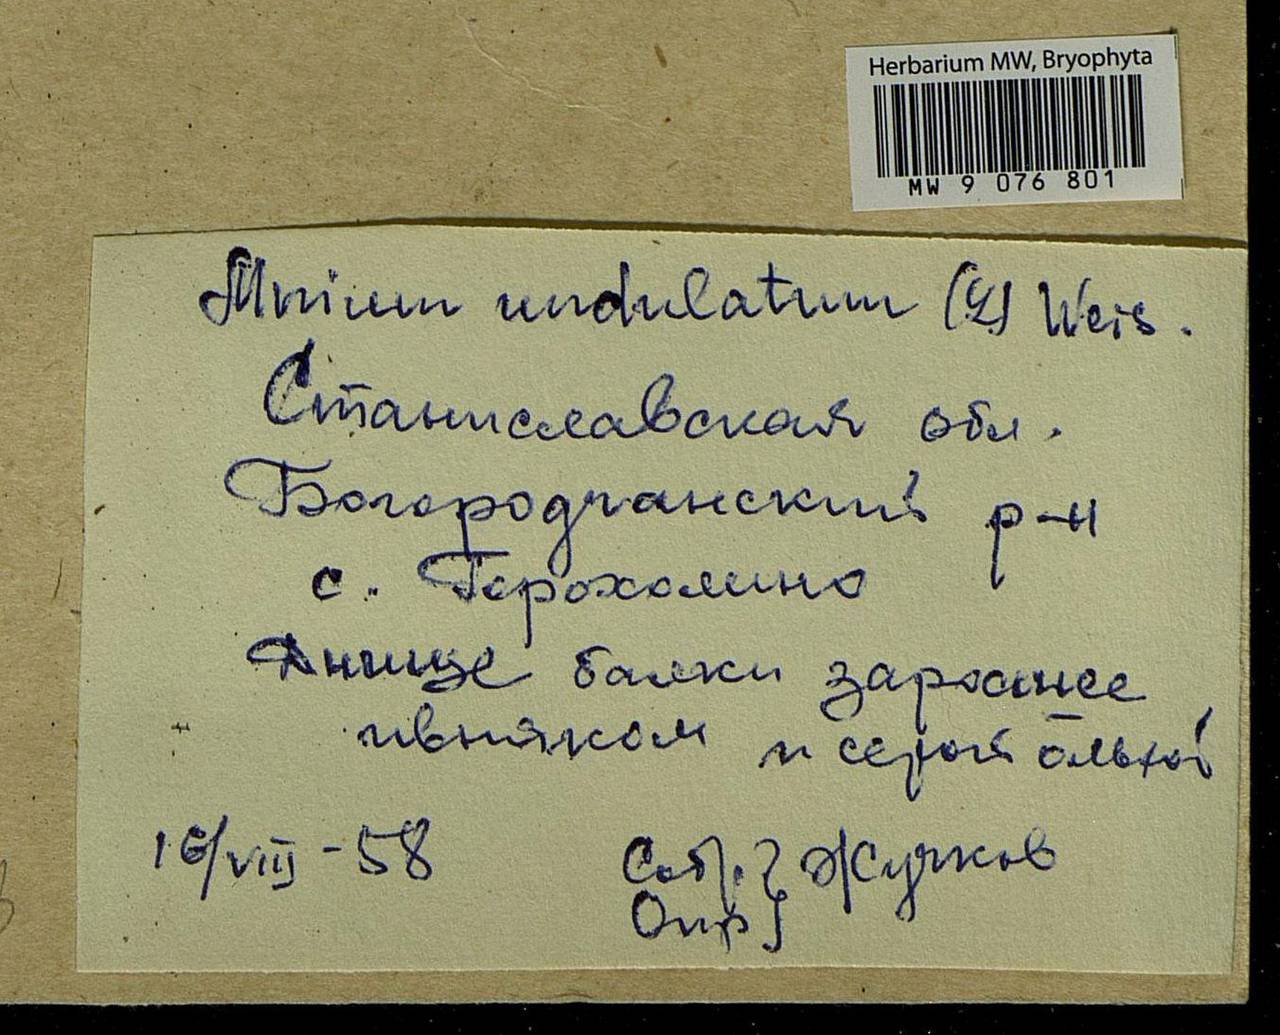 Herbarium MW, Bryophyta
MW 9 076 801
Mnium undulatum (L) Weis.
Станиславская обл.
Богородчанский р-н
с. Горохолино
Днище балки заросшее
ивняком и серой ольхой
16/VIII-58
Собр. } Жучков
Опр }